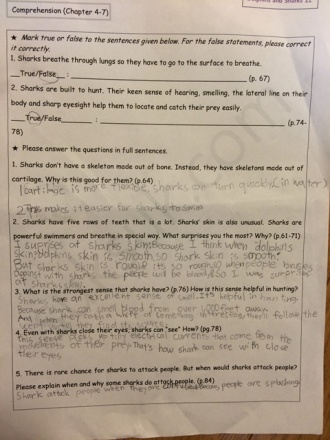 Dolphins and Sharks
Comprehension (Chapter 4-7)
★ Mark true or false to the sentences given below. For the false statements, please correct
it correctly.
1. Sharks breathe through lungs so they have to go to the surface to breathe.
True/False : (p. 67)
2. Sharks are built to hunt. Their keen sense of hearing, smelling, the lateral line on their
body and sharp eyesight help them to locate and catch their prey easily.
True/False : (p.74-
78)
★ Please answer the questions in full sentences.
1. Sharks don't have a skeleton made out of bone. Instead, they have skeletons made out of
cartilage. Why is this good for them? (p.64)
1 cartilage is more flexible, sharks can turn quickly (in water)
2 This makes it easier for sharks to swim
2. Sharks have five rows of teeth that is a lot. Sharks' skin is also unusual. Sharks are
powerful swimmers and breathe in special way. What surprises you the most? Why? (p.61-71)
I suprises at sharks skin. Because I think when dolphins
skin dolphins skin is smooth so shark skin is smooth.
But sharks skin is rough its so rough so when people bruses
against with sharks the people will be bloody so I was surprising
at sharks skin.
3. What is the strongest sense that sharks have? (p.76) How is this sense helpful in hunting?
Sharks have an excellent sense of smell. It's helpful in hunting
Because sharks can smell blood from over 1,000 feet away.
And when they catch a whiff of something interesting, they follow the
4. Even with sharks close their eyes, sharks can "see" How? (pg.78)
This sense picks up tiny electrical currents that come from the
movements of their prey. That's how shark can see with close
their eyes.
5. There is rare chance for sharks to attack people. But when would sharks attack people?
Please explain when and why some sharks do attack people. (p.84)
Shark attack people when they are people are splashing